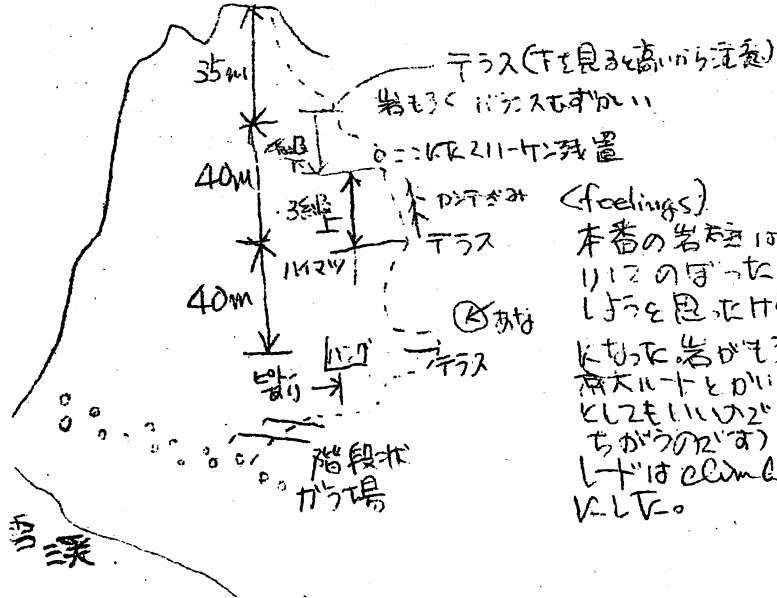 35m
テラス(下を見ると高いから注意)
岩もろく バランスむずかしい
ここにハーケン残置
40m
3級上
カンテぎみ
テラス
ハイマツ
40m
Ⓚあな
ハング
テラス
ピトンあり
階段状
ガラ場
雪渓
(feelings)
本番の岩壁は
のぼった
しようと思ったけ
になった。岩がも
ルートとかい
としてもいいので
ちがうのです)
レードは climb
にした。